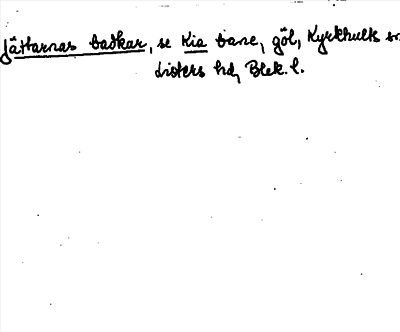 Jättarnas badkar, se Kia bane, göl, Kyrkhults sn
Listers hd, Blek. l.